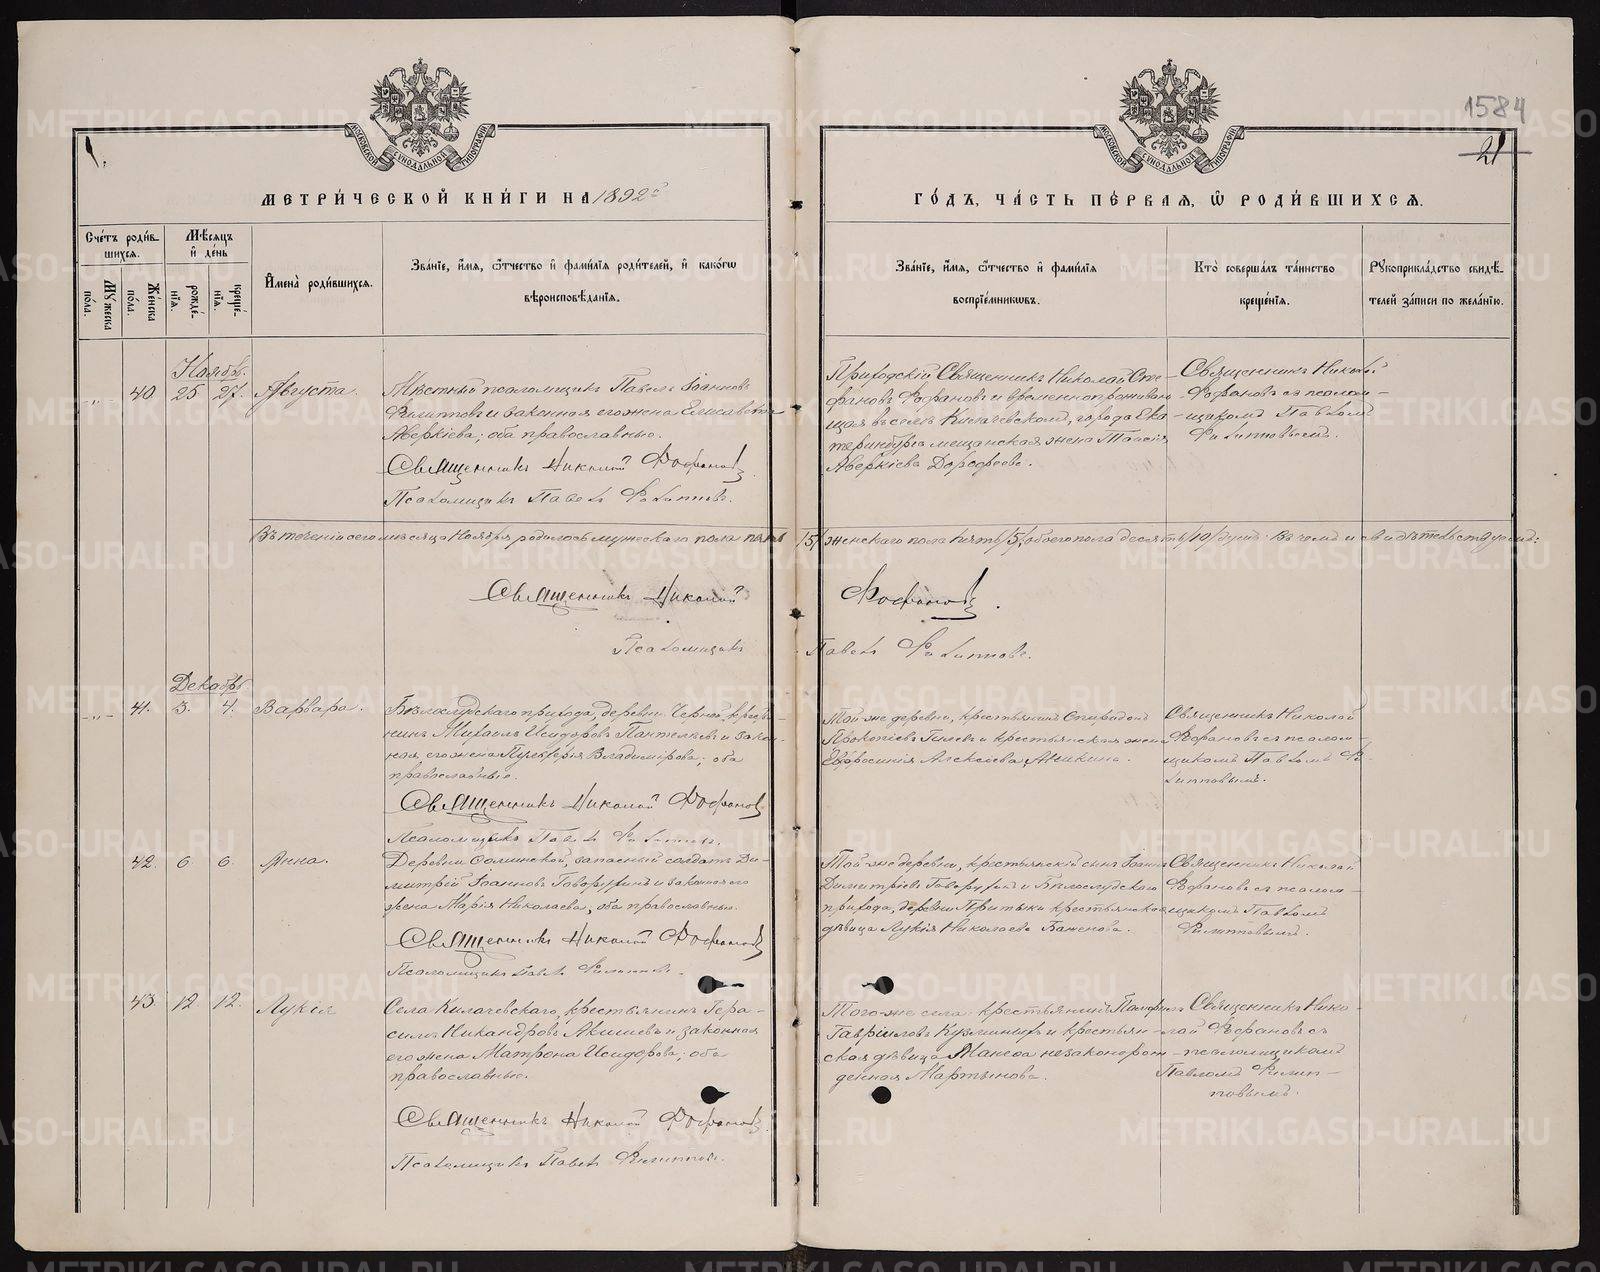 1584
21
МОСКОВСКОЙ СѴНОДАЛЬНОЙ ТИПОГРАФІИ
МОСКОВСКОЙ СѴНОДАЛЬНОЙ ТИПОГРАФІИ
МЕТРИ́ЧЕСКОЙ КНИ́ГИ НА 1892й
ГО́ДЪ, ЧА́СТЬ ПЕ́РВАЯ, Ѿ РОДИ́ВШИХСЯ.
Сче́тъ роди́в-
шихся.
Мꙋжеска по́ла.
Же́нска по́ла.
Мѣ́сяцъ
и҆ де́нь
рожде́нїя.
креще́нїя.
И҆мена̀ роди́вшихся.
Зва́нїе, и҆́мя, ѻ҆́тчество и҆ фами́лїя роди́телей, и҆ како́гѡ
вѣроисповѣ́данїя.
Зва́нїе, и҆́мя, ѻ҆́тчество и҆ фами́лїя
воспрїе́мникѡвъ.
Кто̀ соверша́лъ та́инство
креще́нїя.
Рꙋкоприкла́дство свидѣ́-
телей за́писи по жела́нїю.
Ноябрь
40. 25 27. Августа.
Мѣстный псаломщикъ Павелъ Іоанновъ
Филипповъ и законная его жена Елисавета
Аверкіева; оба православные.
Священникъ Николай Фофановъ
Псаломщикъ Павелъ Филипповъ.
Приходскій Священникъ Николай Сте-
фановъ Фофановъ и временно прожива
щая въ селѣ Килачевскомъ, города Ека
теринбурга мещанская жена Таисія
Аверкіева Дорофеева.
Священникъ Николай
Фофановъ съ псалом-
щикомъ Павломъ
Филипповымъ.
Въ теченіи сего мѣсяца Ноября родилось мужескаго пола пять /5/ женскаго пола пять /5/, обоего пола десять /10/ душъ. Въ чемъ и свидѣтельствуемъ:
Священникъ Николай Фофановъ.
Псаломщикъ Павелъ Филипповъ.
Декабрь
41. 3. 4. Варвара.
Бѣлослудскаго прихода, деревни Черной, крестья-
нинъ Михаилъ Исидоровъ Пантелѣевъ и закон-
ная его жена Пульхерія Владимірова; оба
православные.
Священникъ Николай Фофановъ
Псаломщикъ Павелъ Филипповъ.
Той-же деревни, крестьянинъ Спиридонъ
Прокопіевъ Гилевъ и крестьянская жена
Евфросинія Алексіева
Священникъ Николай
Фофановъ съ псалом-
щикомъ Павломъ Фи-
липповымъ.
42. 6. 6. Анна.
Деревни запасный солдатъ Ди-
митрій Іоанновъ Говорухинъ и законная его
жена Марія Николаева, оба православные.
Священникъ Николай Фофановъ
Псаломщикъ Павелъ Филипповъ.
Той-же деревни, крестьянскій сынъ Іоаннъ
Димитріевъ Говорухинъ и Бѣлослудскаго
прихода, деревни Притыки крестьянская
дѣвица Лукія Николаева Баженова.
Священникъ Николай
Фофановъ съ псалом-
щикомъ Павломъ
Филипповымъ.
43. 12. 12. Лукія
Села Килачевскаго, крестьянинъ Гера-
симъ Никандровъ Акишевъ и законная
его жена Матрона Исидорова; оба
православные.
Священникъ Николай Фофановъ.
Псаломщикъ Павелъ Филипповъ.
Того-же села крестьянинъ
Гавріиловъ Кузминыхъ и крестьян-
ская дѣвица незаконорож-
денная Мартынова.
Священникъ Нико-
лай Фофановъ съ
псаломщикомъ
Павломъ Филип-
повымъ.
METRIKI.GASO-URAL.RU